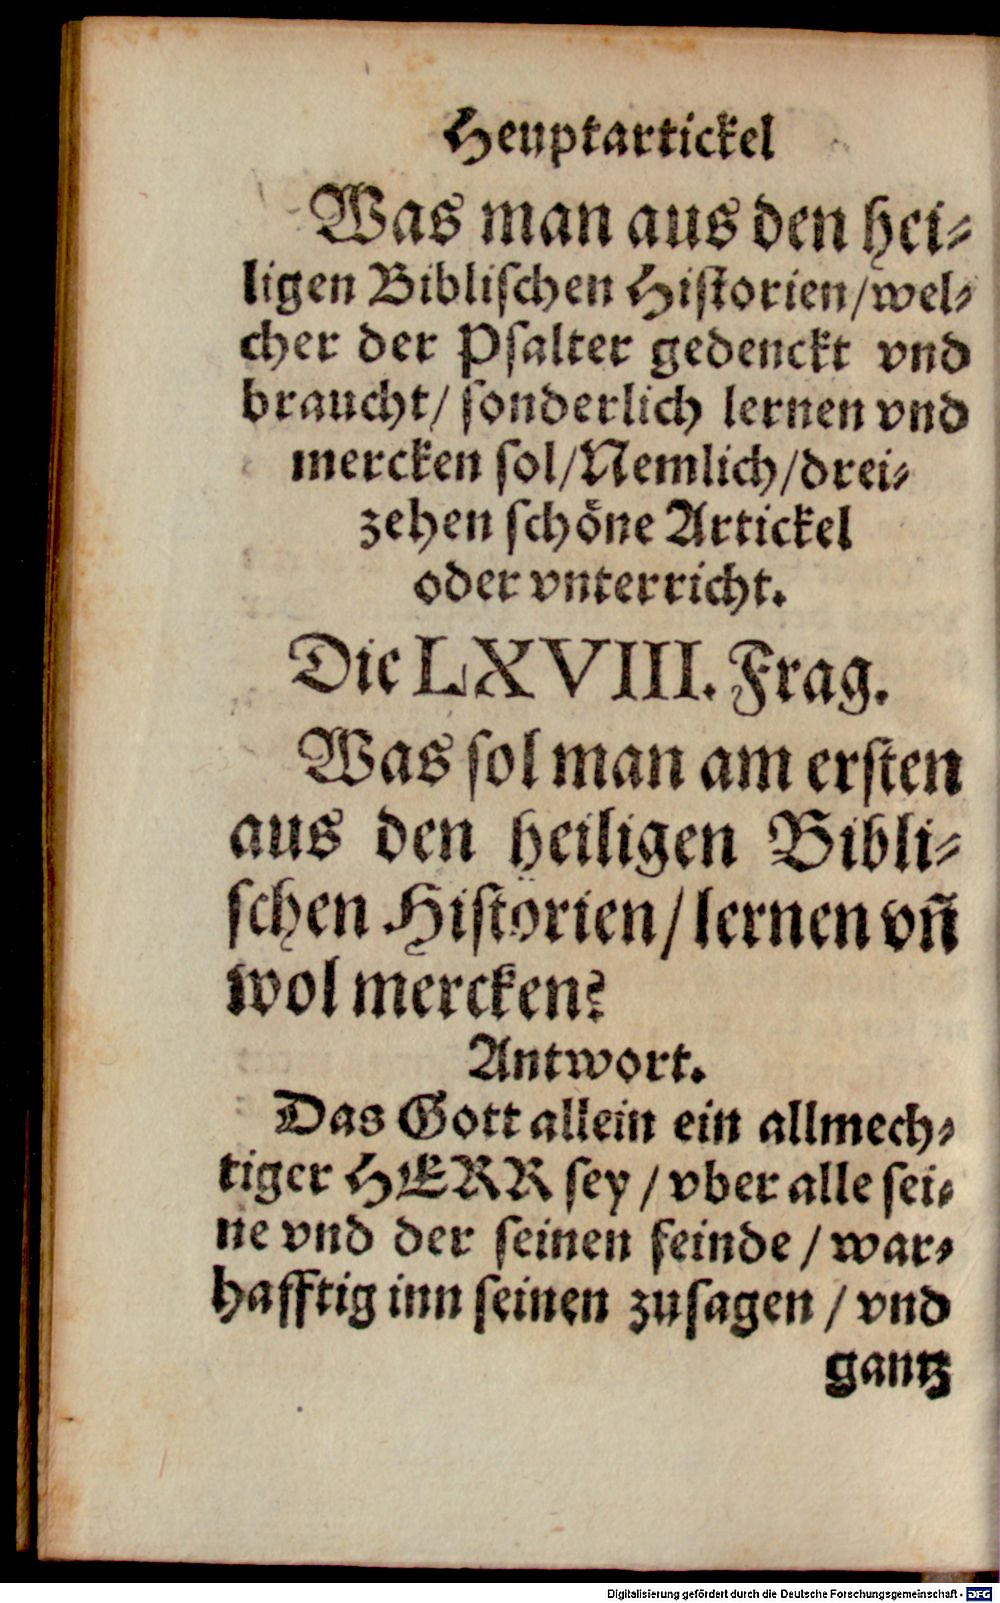 Heuptartickel
Was man aus den hei⸗
ligen Bibliſchen Hiſtorien/wel⸗
cher der Pſalter gedenckt vnd
braucht/ ſonderlich lernen vnd
mercken ſol/Nemlich/drei⸗
zehen ſchöne Artickel
oder vnterricht.
Die LXVIII. Frag.
Was ſol man am erſten
aus den heiligen Bibli⸗
ſchen Hiſtorien/lernen vñ
wol mercken?
Antwort.
Das Gott allein ein allmech⸗
tiger HERR ſey / vber alle ſei⸗
ne vnd der ſeinen feinde / war⸗
hafftig inn ſeinen zuſagen / vnd
gantz
Digitalisierung gefördert durch die Deutsche Forschungsgemeinschaft - DFG